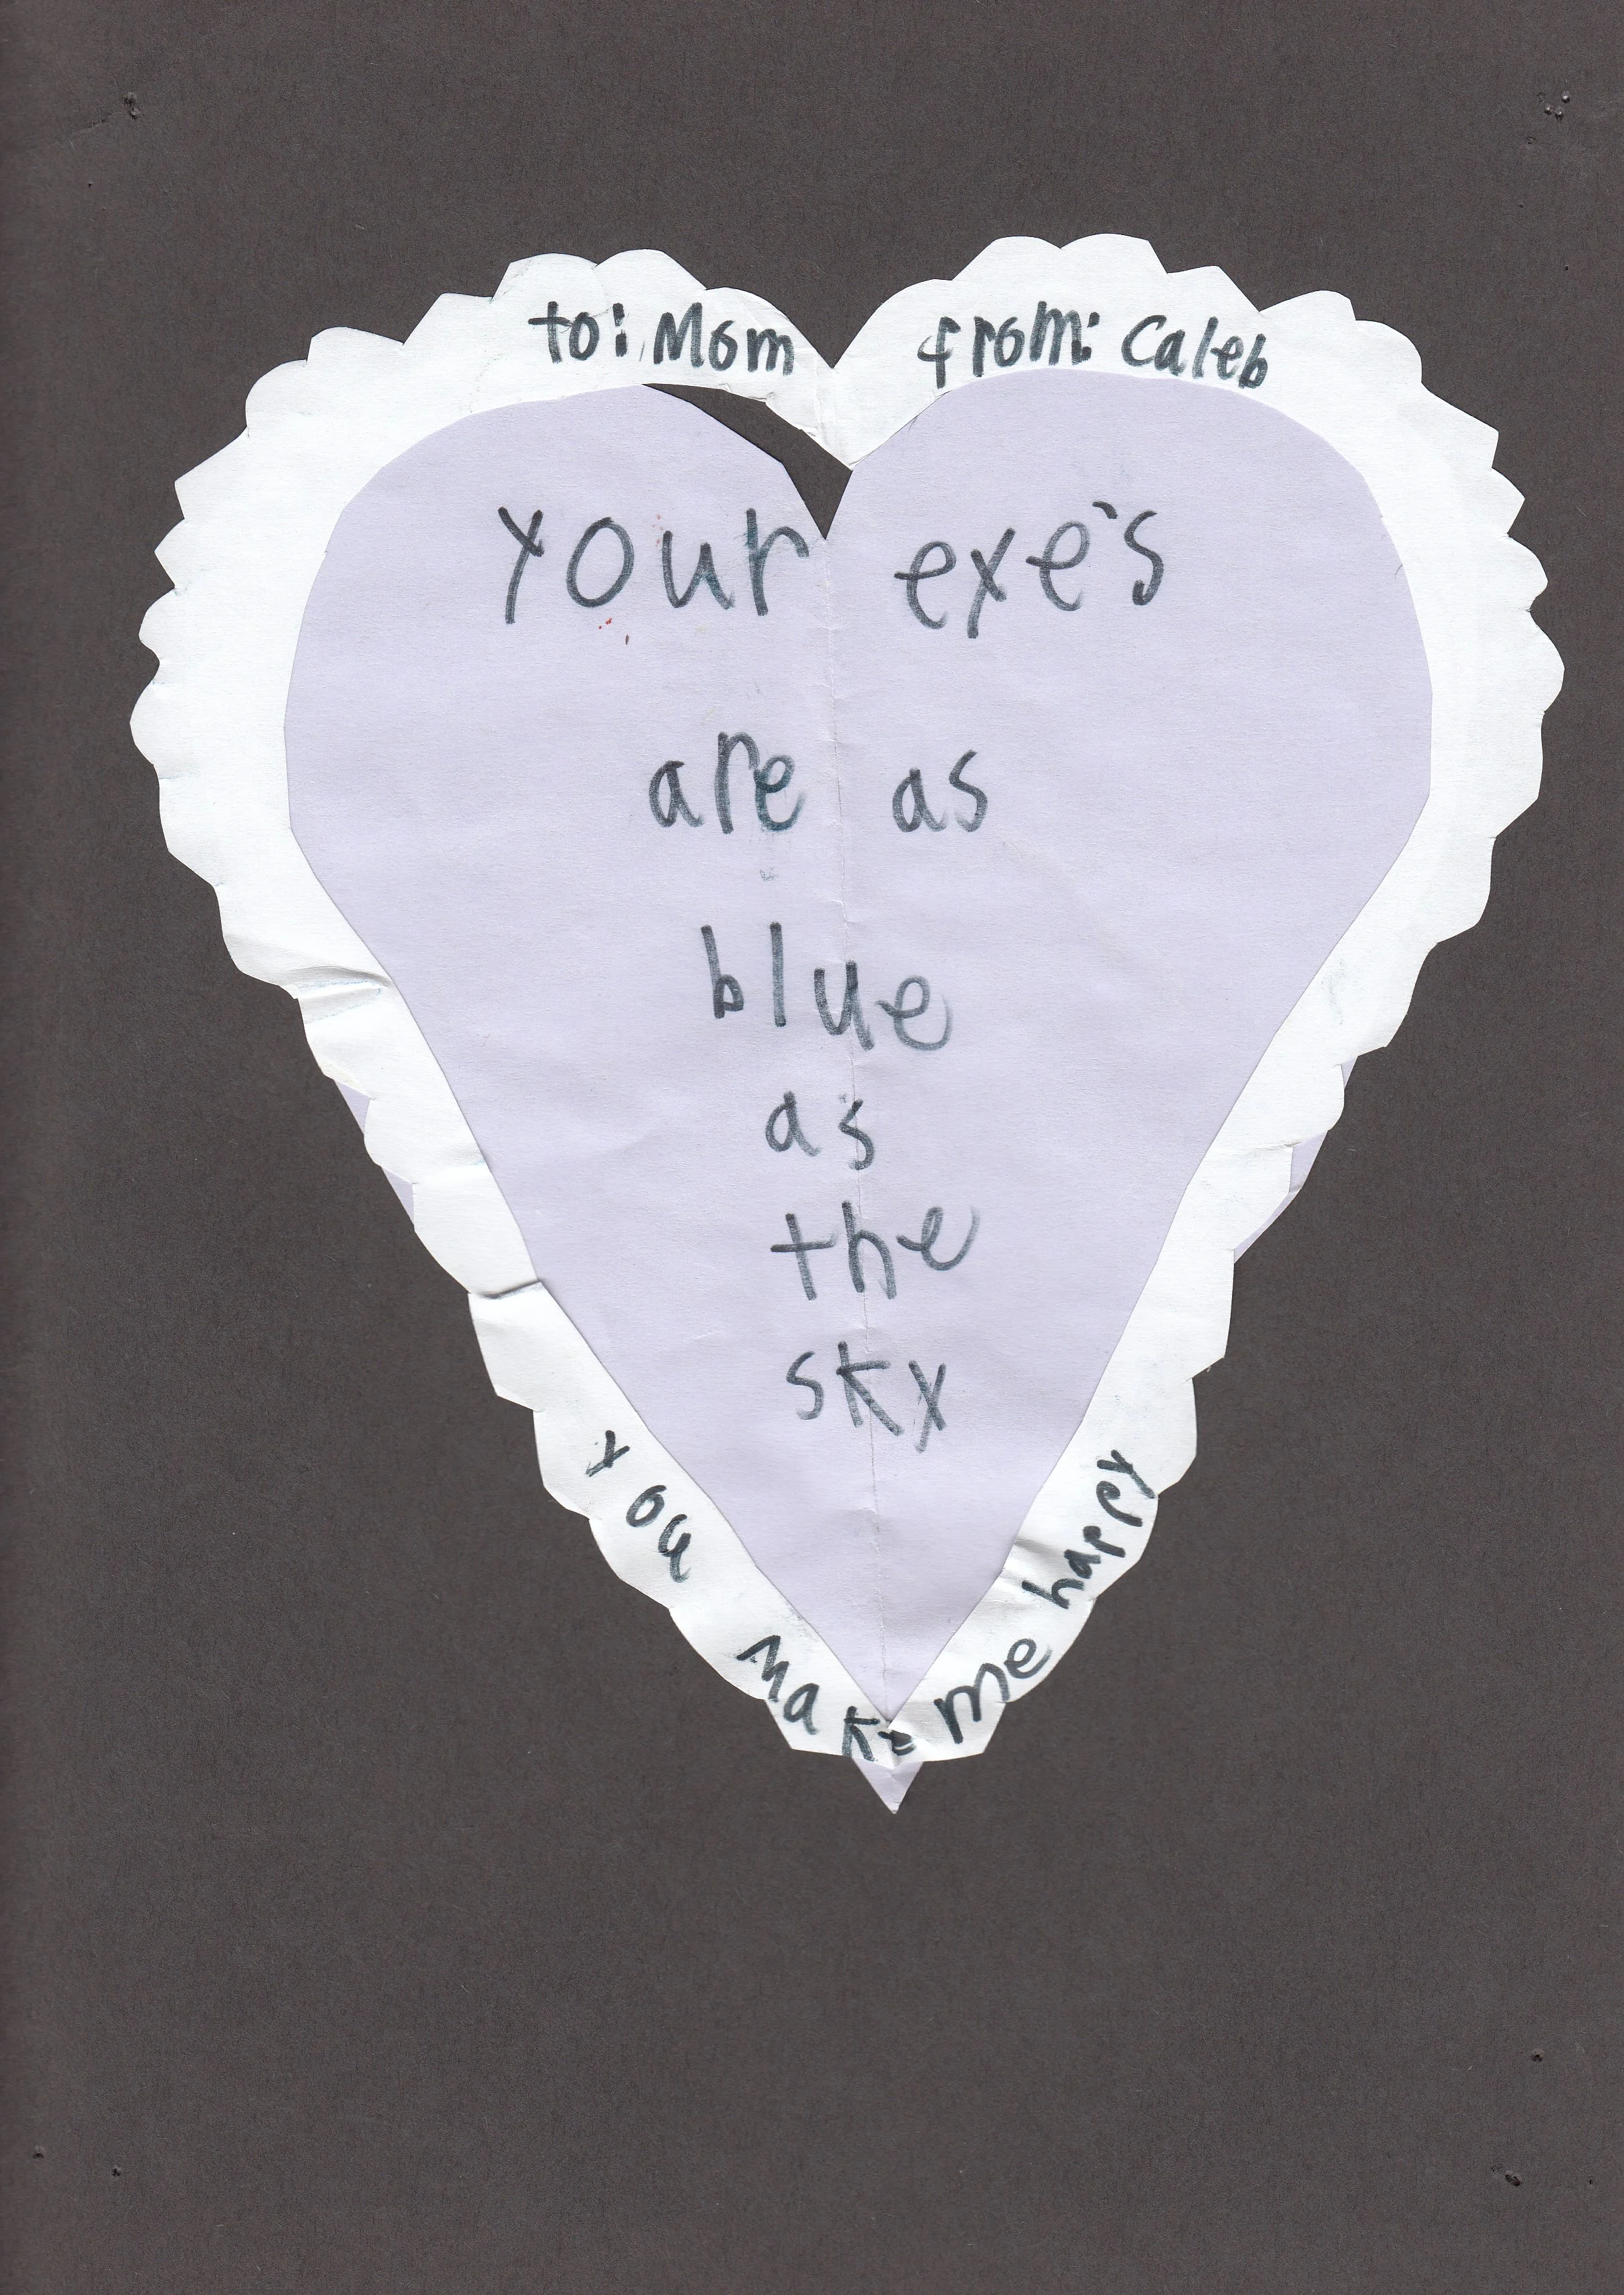 to: Mom from: Caleb
your eye's
are as
blue
as
the
sky
you make me happy